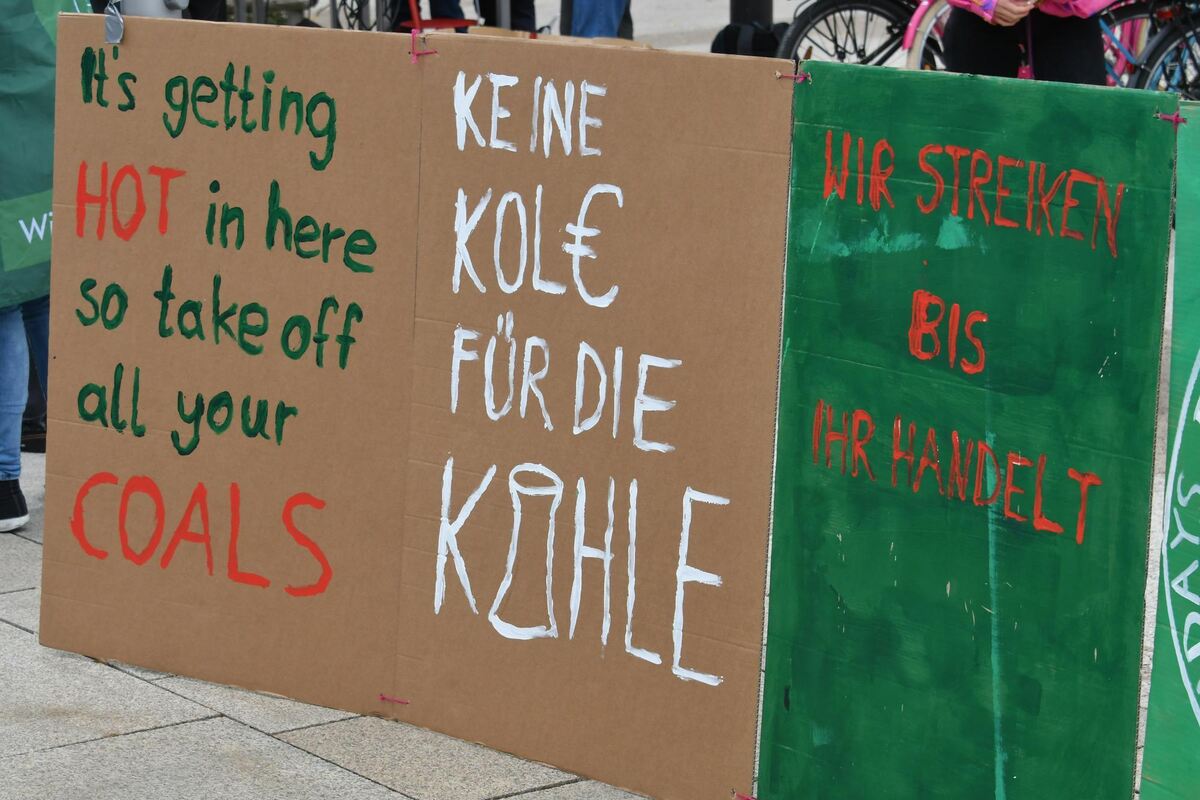 It's getting
HOT in here
so take off
all your
COALS
KEINE
KOL€
FÜR DIE
KOHLE
WIR STREIKEN
BIS
IHR HANDELT
Wi
DAYS